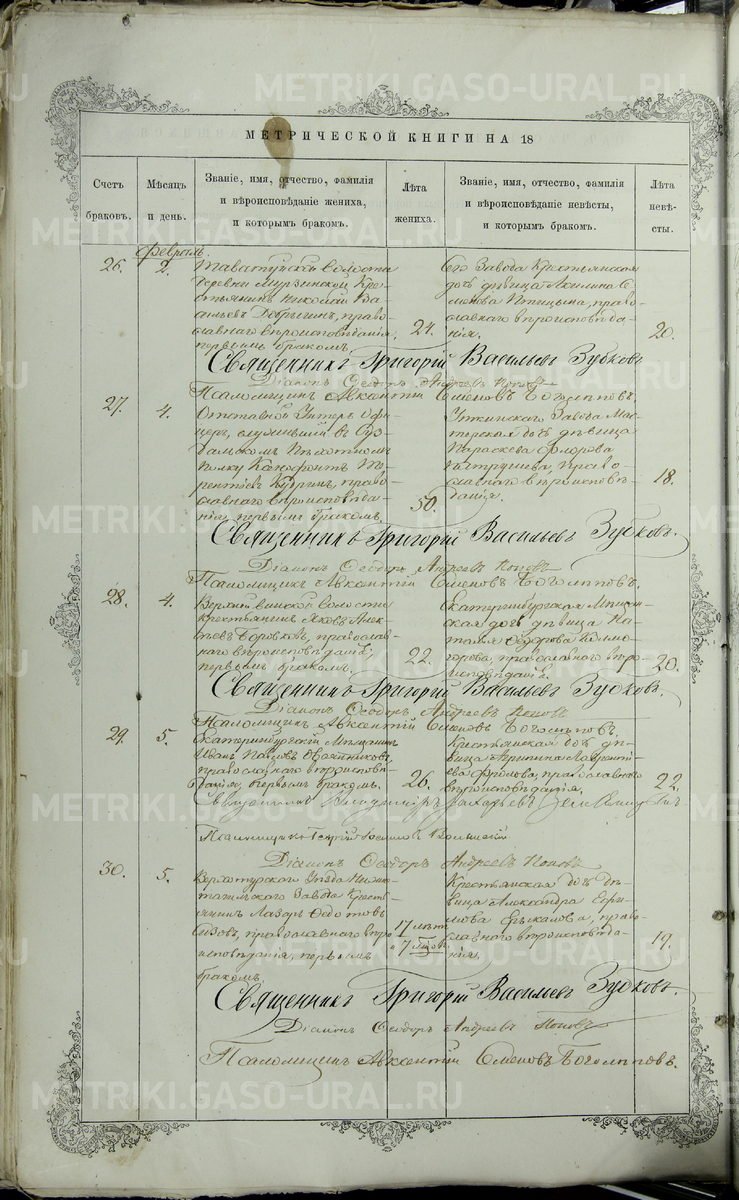 МЕТРИЧЕСКОЙ КНИГИ НА 18
Счетъ браковъ.
Мѣсяцъ и день.
Званіе, имя, отчество, фамилія и вѣроисповѣданіе жениха, и которымъ бракомъ.
Лѣта жениха.
Званіе, имя, отчество, фамилія и вѣроисповѣданіе невѣсты, и которымъ бракомъ.
Лѣта невѣсты.
февраль
26. 2.
Таватуйской волости
деревни Мурзинской Кре-
стьянинъ Николай Ва-
сильевъ, право-
славнаго вѣроисповѣданія,
первымъ бракомъ.
24.
Его Завода Крестьянская
дочь дѣвица Акилина Се-
менова Птицына, право-
славнаго вѣроисповѣда-
нія.
20.
Священникъ Григорій Васильевъ Зубковъ
Діаконъ Ѳеодоръ Андреевъ Поповъ
Псаломщикъ Авксентій Семеновъ Боголѣповъ.
27. 4.
Отставной Унтеръ Офи-
церъ, служившій въ Суз-
дальскомъ Пѣхотномъ
Полку Ксенофонтъ Те-
рентіевъ, право-
славнаго вѣроисповѣда-
нія, первымъ бракомъ
50.
Уткинскаго Завода Мас-
терская дочь дѣвица
Параскева Флорова
право-
славнаго вѣроисповѣ-
данія.
18.
Священникъ Григорій Васильевъ Зубковъ.
Діаконъ Ѳеодоръ Андреевъ Поповъ
Псаломщикъ Авксентій Семеновъ Боголѣповъ.
28. 4.
волости
Крестьянинъ Яковъ Алек-
сѣевъ Боровковъ, православ-
наго вѣроисповѣданія,
первымъ бракомъ.
22.
Екатеринбургская Мѣщан-
ская дочь дѣвица На-
талія Ѳедорова Колмо-
горова, православнаго вѣро-
исповѣданія.
20.
Священникъ Григорій Васильевъ Зубковъ.
Діаконъ Ѳеодоръ Андреевъ Поповъ
Псаломщикъ Авксентій Семеновъ Боголѣповъ.
29. 5.
Екатеринбургскій Мѣщанинъ
Иванъ Павловъ Овчинниковъ,
православнаго вѣроисповѣ-
данія, первымъ бракомъ.
26.
Крестьянская дочь дѣ-
вица Агрипина Лавренті-
ева Фролова, православнаго
вѣроисповѣданія.
22.
Священникъ Владиміръ Захарьевъ
Псаломщикъ Георгій
Діаконъ Ѳеодоръ Андреевъ Поповъ
30. 5.
Верхотурскаго Уѣзда Нижне-
тагильскаго Завода Кресть-
янинъ Лазарь Ѳедотовъ
Сизовъ, православнаго вѣро-
исповѣданія, первымъ
бракомъ.
17 лѣтъ
и 7 мѣсяц.
Крестьянская дочь дѣ-
вица Александра Ефи-
мова, право-
славнаго вѣроисповѣда-
нія.
19.
Священникъ Григорій Васильевъ Зубковъ.
Діаконъ Ѳеодоръ Андреевъ Поповъ
Псаломщикъ Авксентій Семеновъ Боголѣповъ.
METRIKI.GASO-URAL.RU